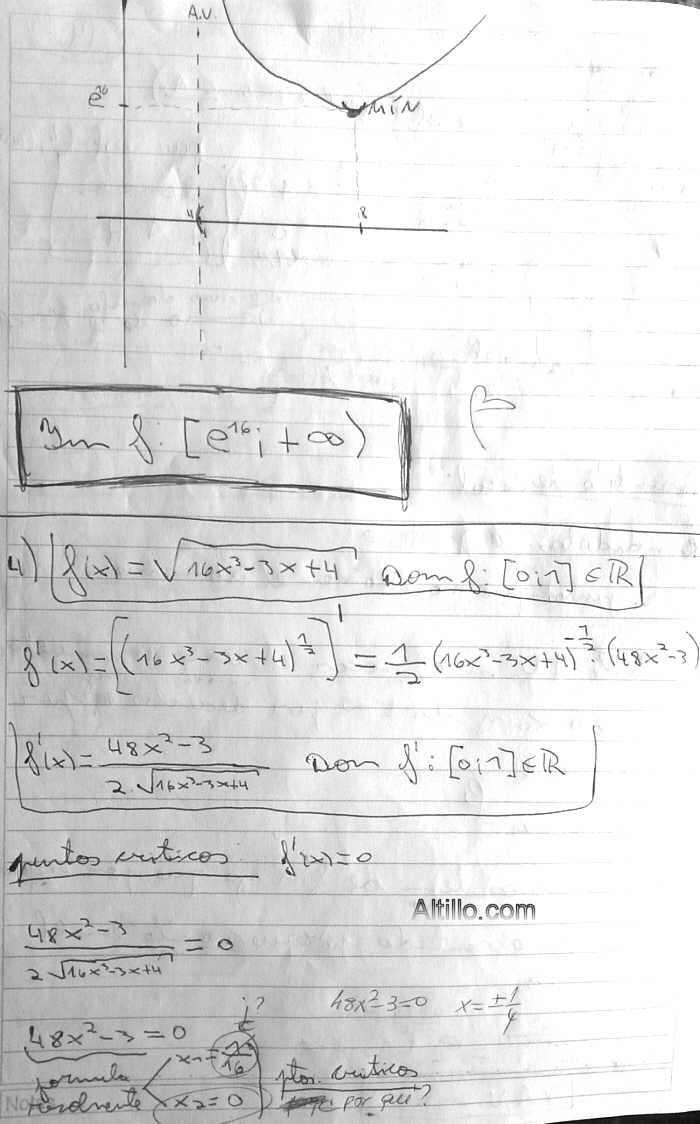 A.V.
e¹⁶
MÍN
4
8
Im f: [e¹⁶; +∞)
B
4) f(x) = √(16x³-3x+4) Dom f: [0;1] ∈ ℝ
f'(x) = [(16x³-3x+4)^(1/2)]' = 1/2 (16x³-3x+4)^(-1/2) · (48x²-3)
f'(x) = (48x²-3)/(2·√(16x³-3x+4)) Dom f': [0;1] ∈ ℝ
puntos criticos f'(x)=0
Altillo.com
(48x²-3)/(2√(16x³-3x+4)) = 0
¿? 48x²-3=0 x=±1/4
48x²-3=0 x₁=1/16
formula ptos. criticos
resolvente x₂=0 por qué?